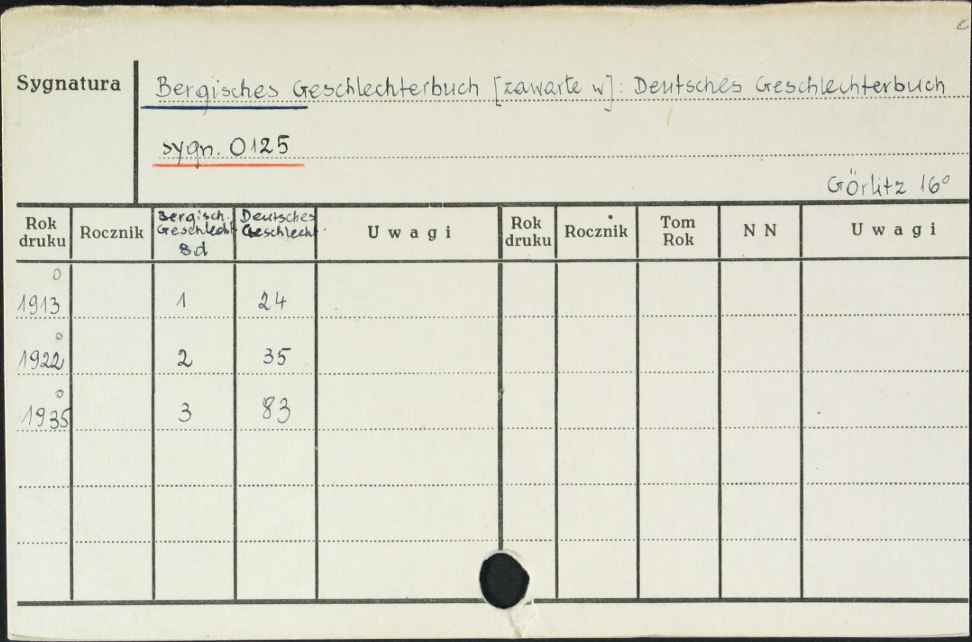 Sygnatura Bergisches Geschlechterbuch [zawarte w]: Deutsches Geschlechterbuch
sygn. 0125
Görlitz 16°
Rok druku Rocznik Bergisch. Geschlecht. Bd Deutsches Geschlecht. Uwagi Rok druku Rocznik Tom Rok NN Uwagi
1913 1 24
1922 2 35
1935 3 83